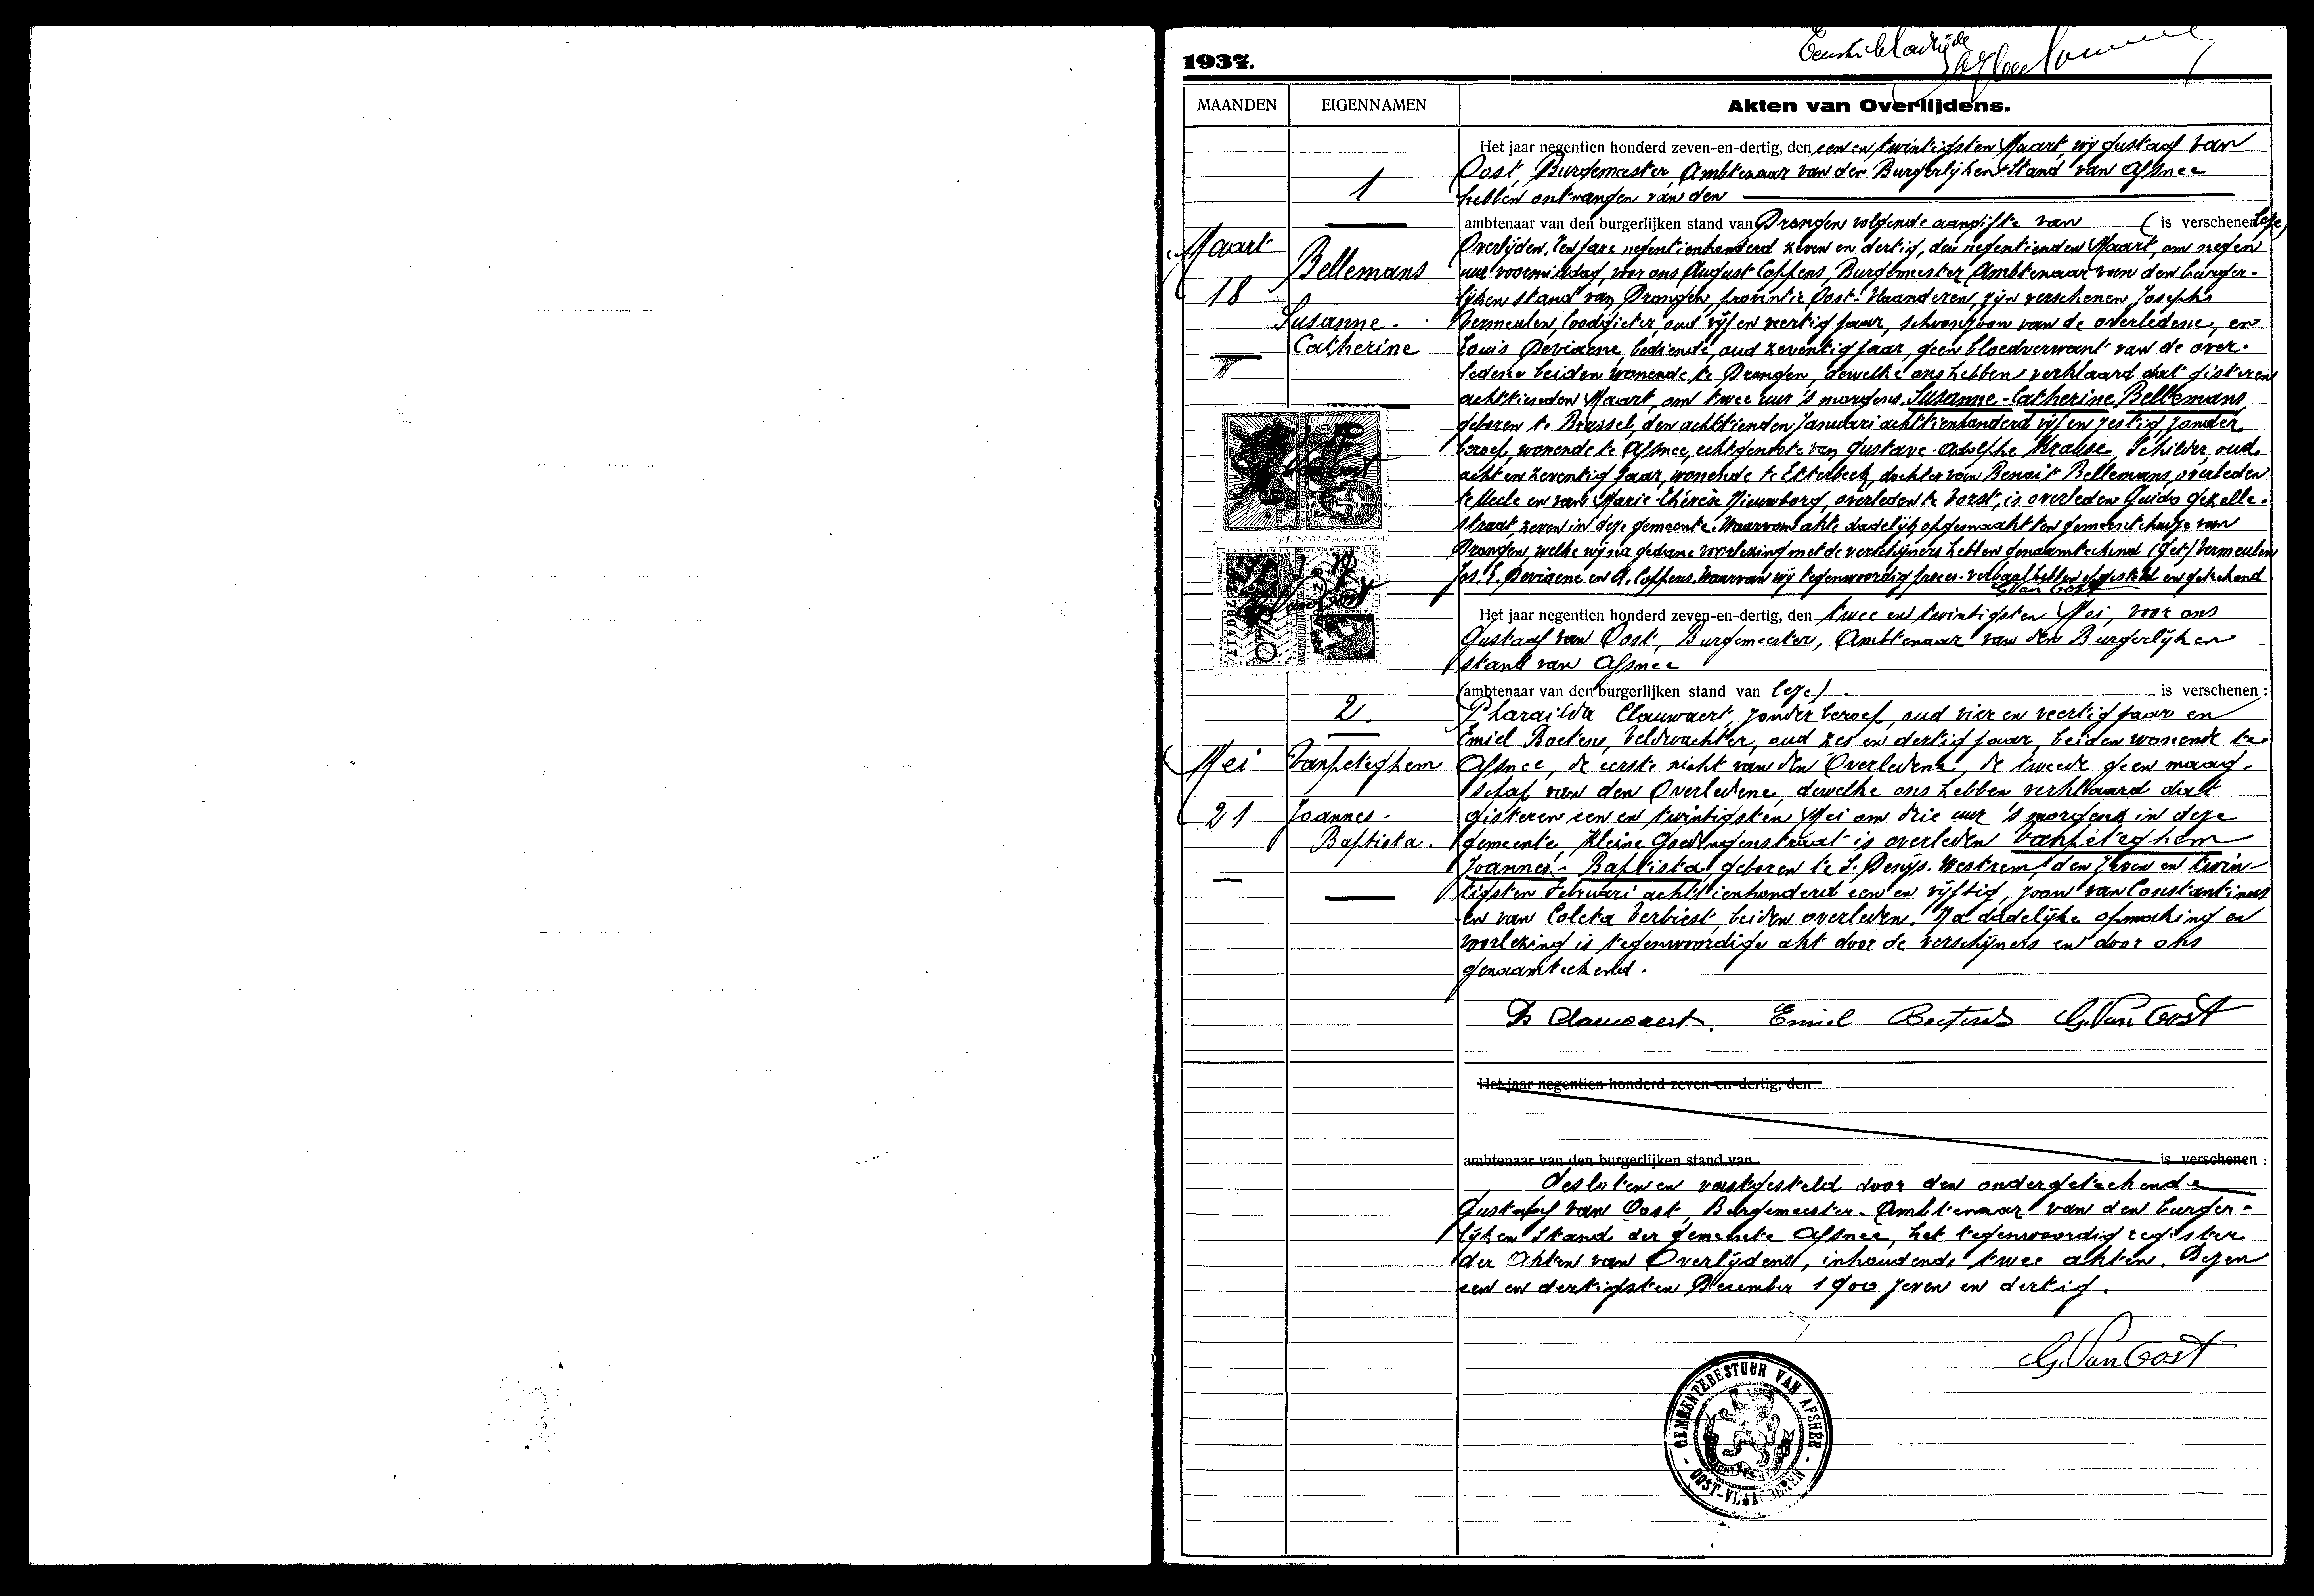 1937.
MAANDEN
EIGENNAMEN
Akten van Overlijdens.
1
Maart
18
Bellemans
Susanne.
Catherine
Het jaar negentien honderd zeven-en-dertig, den een en twintigsten Maart, wij Gustaaf Van
Oost, Burgemeester, Ambtenaar van den Burgerlijken Stand van Afsnee
hebben ontvangen van den
ambtenaar van den burgerlijken stand van Drongen volgende aangifte van ( is verschenen leze)
Overlijden. Ten jare negentienhonderd zeven en dertig, den negentienden Maart, om negen
uur voormiddag, voor ons August Coppens, Burgemeester Ambtenaar van den burger-
lijken stand van Drongen, provintie Oost-Vlaanderen, zijn verschenen Josephs
Vermeulen, loodgieter, oud vijf en veertig jaar, schoonzoon van de overledene, en
Louis Deviaene, bediende, oud zeventig jaar, geen bloedverwant van de over-
ledene beiden wonende te Drongen, dewelke ons hebben verklaard dat gisteren
achttienden Maart, om twee uur 's morgens, Susanne-Catherine Bellemans
geboren te Brussel, den achttienden Januari achttienhonderd vijf en zestig, zonder
beroep, wonende te Afsnee, echtgenoote van Gustave-Adolphe Krause, Schilder, oud
acht en zeventig jaar, wonende te Etterbeek, dochter van Benoit Bellemans, overleden
te Uccle en van Marie-Thérèse Nieuwborg, overleden te Vorst, is overleden Guido Gezelle-
straat, zeven in deze gemeente. Waarvan akte dadelijk opgemaakt ten gemeentehuize van
Drongen, welke wij na gedane voorlezing met de verschijners hebben genaamteekend (get) Vermeulen
Jos. L. Deviaene en A. Coppens. Waarvan wij tegenwoordig proces-verbaal hebben opgesteld en geteekend
G. Van Oost
2.
Mei
21
Vanpeteghem
Joannes-
Baptista.
Het jaar negentien honderd zeven-en-dertig, den twee en twintigsten Mei, voor ons
Gustaaf van Oost, Burgemeester, Ambtenaar van den Burgerlijken
stand van Afsnee
(ambtenaar van den burgerlijken stand van leze). is verschenen :
Pharaïlda Clauwaert, zonder beroep, oud vier en veertig jaar en
Emiel Boetens, Veldwachter, oud zes en dertig jaar, beiden wonende te
Afsnee, de eerste nicht van den Overledene, de tweede geen maag-
schap van den Overledene, dewelke ons hebben verklaard dat
gisteren een en twintigsten Mei om drie uur 's morgens in deze
gemeente, Kleine Goedingenstraat is overleden Vanpeteghem
Joannes-Baptista, geboren te S. Denijs-Westrem, den zeven en twin-
tigsten Februari achttienhonderd een en vijftig, zoon van Constantinus
en van Coleta Verbiest, beiden overleden. Na dadelijke opmaking en
voorlezing is tegenwoordige akt door de verschijners en door ons
genaamteekend.
Ph Clauwaert. Emiel Boetens G. Van Oost
Het jaar negentien honderd zeven-en-dertig, den
ambtenaar van den burgerlijken stand van is verschenen :
Gesloten en vastgesteld door den ondergeteekende
Gustaaf Van Oost, Burgemeester-Ambtenaar van den burger-
lijken Stand der gemeente Afsnee, het tegenwoordig register
der Akten van Overlijdens, inhoudende twee akten. Dezen
een en dertigsten December 1900 zeven en dertig.
G. Van Oost
GEMEENTEBESTUUR VAN AFSNEE
- OOST-VLAANDEREN -